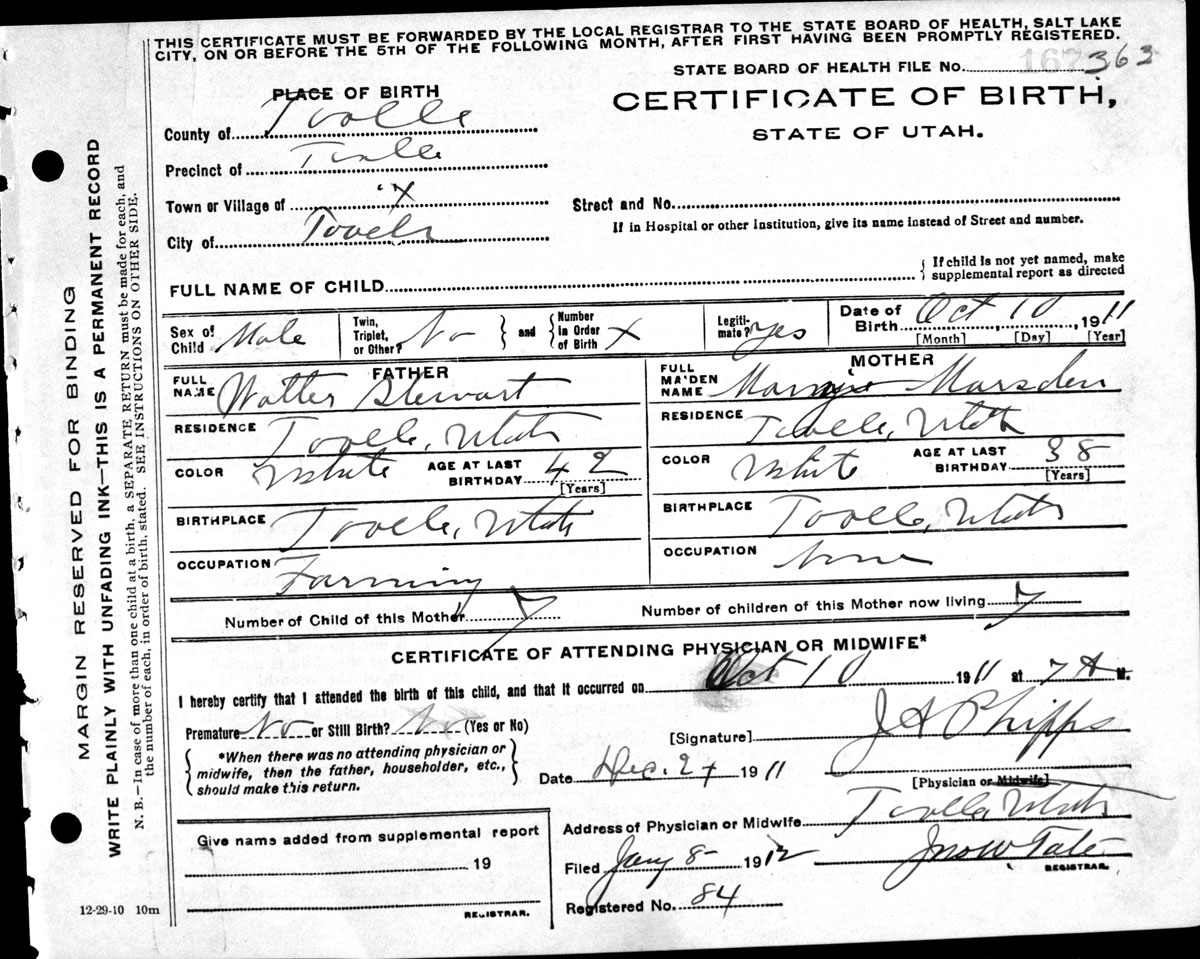 THIS CERTIFICATE MUST BE FORWARDED BY THE LOCAL REGISTRAR TO THE STATE BOARD OF HEALTH, SALT LAKE
CITY, ON OR BEFORE THE 5TH OF THE FOLLOWING MONTH, AFTER FIRST HAVING BEEN PROMPTLY REGISTERED.
STATE BOARD OF HEALTH FILE No. 363
PLACE OF BIRTH
CERTIFICATE OF BIRTH,
STATE OF UTAH.
County of Tooele
Precinct of Tooele
Town or Village of X
Street and No.
If in Hospital or other Institution, give its name instead of Street and number.
City of Tooele
FULL NAME OF CHILD
{ If child is not yet named, make
supplemental report as directed
Sex of Child Male
Twin, Triplet, or Other? No } and { Number in Order of Birth X
Legiti-mate? Yes
Date of Birth Oct 10, 1911
[Month] [Day] [Year]
FATHER
FULL NAME Walter Stewart
RESIDENCE Tooele, Utah
COLOR White AGE AT LAST BIRTHDAY 42
[Years]
BIRTHPLACE Tooele, Utah
OCCUPATION Farming
MOTHER
FULL MAIDEN NAME Marsden
RESIDENCE Tooele, Utah
COLOR White AGE AT LAST BIRTHDAY 38
[Years]
BIRTHPLACE Tooele, Utah
OCCUPATION None
Number of Child of this Mother 7
Number of children of this Mother now living 7
CERTIFICATE OF ATTENDING PHYSICIAN OR MIDWIFE*
I hereby certify that I attended the birth of this child, and that it occurred on Oct 10 1911 at 7 A M.
Premature No or Still Birth? No (Yes or No)
{ *When there was no attending physician or
midwife, then the father, householder, etc.,
should make this return. }
[Signature] J A Phipps
[Physician or Midwife]
Date Dec. 1911
Give name added from supplemental report
19
REGISTRAR.
Address of Physician or Midwife Tooele, Utah
Filed Jany 8- 1912 Jno W Tate
REGISTRAR.
Registered No. 84
12-29-10 10m
MARGIN RESERVED FOR BINDING
WRITE PLAINLY WITH UNFADING INK—THIS IS A PERMANENT RECORD
N. B.—In case of more than one child at a birth, a SEPARATE RETURN must be made for each, and
the number of each, in order of birth, stated. SEE INSTRUCTIONS ON OTHER SIDE.